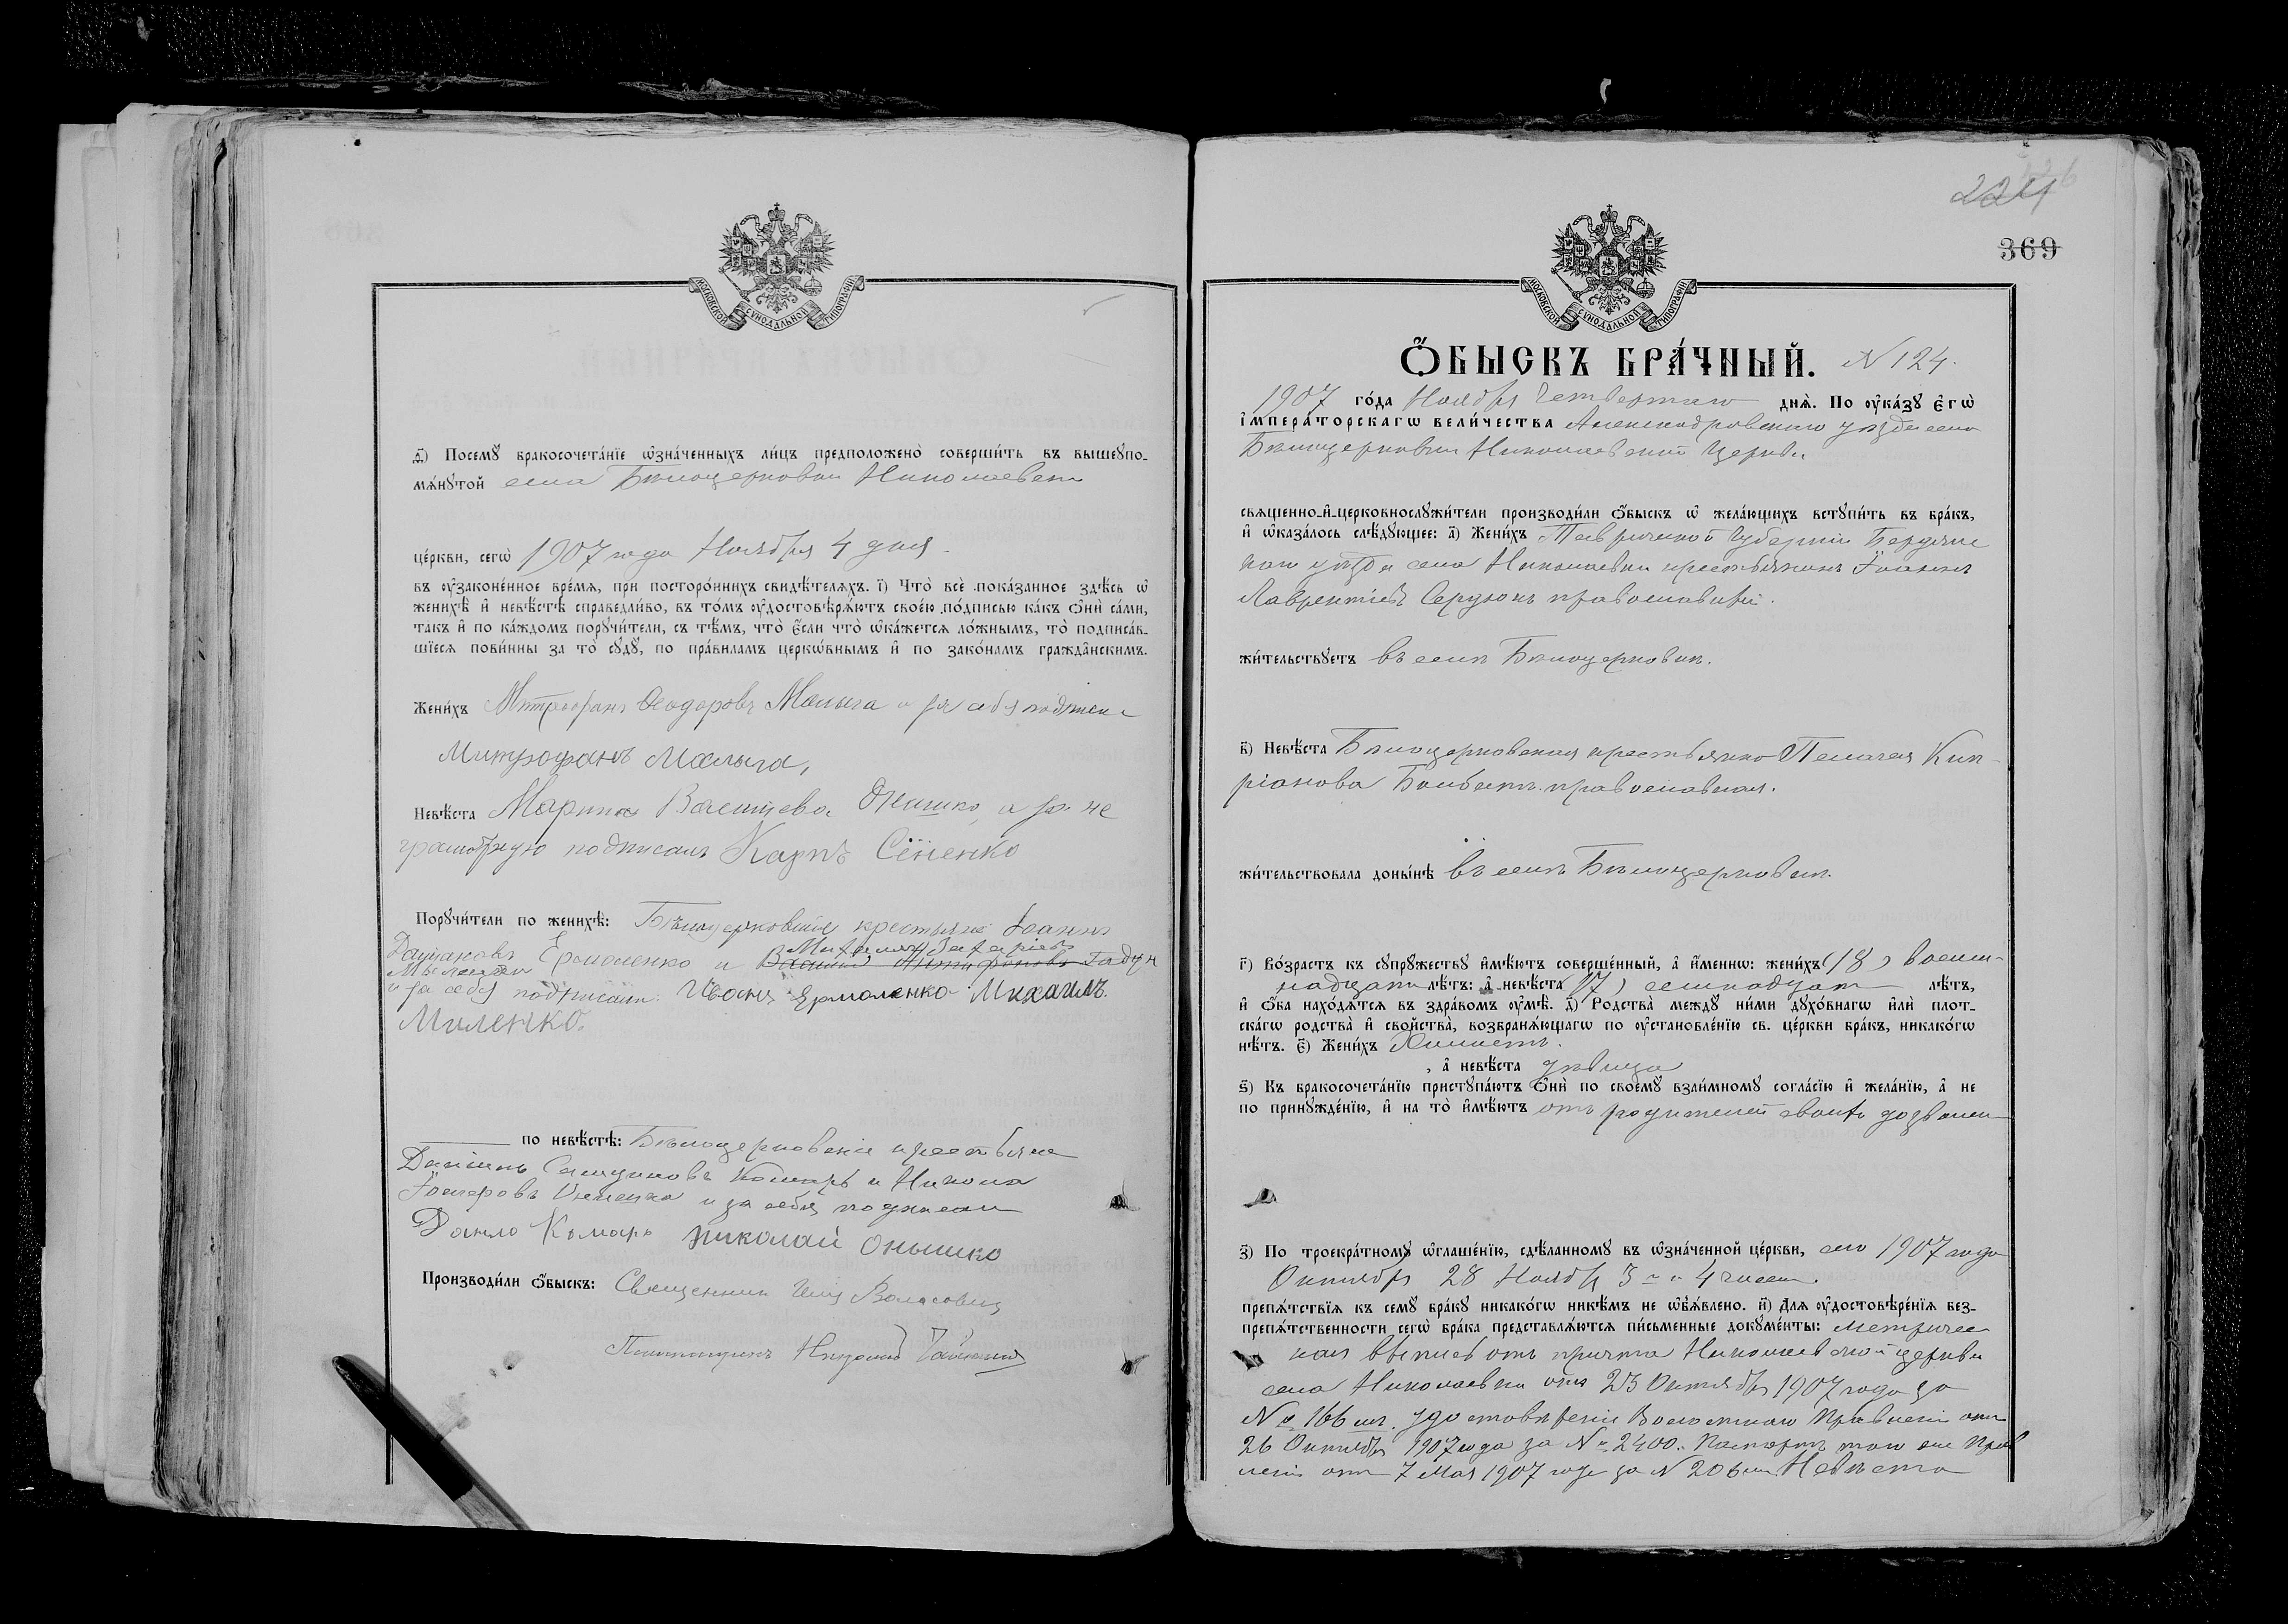 МОСКОВСКОЙ СѴНОДАЛЬНОЙ ТИПОГРАФІИ
ѳ҃) Посемꙋ̀ бракосочета́нїе ѡ҆зна́ченныхъ ли́цъ предположено̀ соверши́ть въ вышеꙋпо-
мѧ́нꙋтой села Бѣлоцерковки Николаевской
це́ркви, сегѡ̀ 1907 года Ноября 4 дня.
въ ᲂу҆зако́ненное вре́мѧ, при посторо́ннихъ свидѣ́телѧхъ. і҃) Что̀ всѐ пока́занное здѣ́сь ѡ҆
женихѣ̀ и҆ невѣ́стѣ справедли́во, въ то́мъ ᲂу҆достовѣрѧ́ютъ свое́ю по́дписью ка́къ ѻ҆нѝ са́ми,
та́къ и҆ по ка́ждомъ порꙋчи́тели, съ тѣ́мъ, что̀ є҆́сли что̀ ѡ҆ка́жетсѧ ло́жнымъ, то̀ подписа́в-
шїесѧ пови́нны за то̀ сꙋдꙋ̀, по пра́виламъ церкѡ́внымъ и҆ по зако́намъ гражда̑нскимъ.
Жени́хъ Митрофанъ Ѳеодоровъ Малыга и за себя подписался
Митрофанъ Малыга,
Невѣ́ста Марина Васильева Онишко, а за не
грамотную подписалъ Карпъ Сененко
Порꙋчи́тели по женихѣ̀: Бѣлоцерковскіе крестьяне Іоаннъ
Даміановъ Ермоленко и Михаилъ Захаріевъ
Миленко
и за себя подписали: Иванъ Ермоленко Михаилъ
Миленко.
по невѣ́стѣ: Бѣлоцерковскіе крестьяне
Даніилъ Комарь и Никола
Іосифовъ и за себя подписали
Данило Комарь Николай Онышко
Производи́ли ѻ҆́быскъ: Священникъ Власовиц
Псаломщикъ
МОСКОВСКОЙ СѴНОДАЛЬНОЙ ТИПОГРАФІИ
224
369
Ѻ҆́БЫСКЪ БРА́ЧНЫЙ. N 124.
1907 го́да Ноября Четвертаго днѧ̀. По ᲂу҆ка́зꙋ є҆гѡ̀
і҆мпера́торскагѡ вели́чества Александровскаго уѣзда села
Бѣлоцерковки Николаевской Церкви
свѧще́нно-и҆-церковнослꙋжи́тели производи́ли ѻ҆́быскъ ѡ҆ жела́ющихъ встꙋпи́ть въ бра́къ,
и҆ ѡ҆каза́лось слѣ́дꙋющее: а҃) Жени́хъ Таврической Губерніи Бердянс
каго уѣзда села Николаевки крестьянинъ Іоаннъ
Лаврентіевъ Сердюкъ православный.
жи́тельствꙋетъ въ селѣ Бѣлоцерковкѣ.
в҃) Невѣ́ста Бѣлоцерковская крестьянка Пелагея Кип-
ріанова православная.
жи́тельствовала доны́нѣ въ селѣ Бѣлоцерковкѣ.
г҃) Во́зрастъ къ сꙋпрꙋ́жествꙋ и҆мѣ́ютъ соверше́нный, а҆ и҆́меннѡ: жени́хъ (18) восем-
надцать лѣ́тъ: а҆ невѣ́ста (17) семнадцать лѣ́тъ,
и҆ ѻ҆́ба нахо́дѧтсѧ въ здра́вомъ ᲂу҆мѣ̀. д҃) Родства̀ междꙋ̀ ни́ми дꙋхо́внагѡ и҆лѝ плот-
ска́гѡ родства̀ и҆ сво́йства̀, возбранѧ́ющагѡ по ᲂу҆становле́нїю св. це́ркви бра́къ, никако́гѡ
нѣ́тъ. є҃) Жени́хъ Холостъ.
, а҆ невѣ́ста дѣвица
ѕ҃) Къ бракосочета́нїю пристꙋпа́ютъ ѻ҆нѝ по своемꙋ̀ взаи́мномꙋ согла́сїю и҆ жела́нїю, а҆ не
по принꙋжде́нїю, и҆ на то̀ и҆мѣ́ютъ отъ родителей своихъ дозволен
з҃) По троекра́тномꙋ ѡ҆глаше́нїю, сдѣ́ланномꙋ въ ѡ҆зна́ченной це́ркви, сего 1907 года
Октября 28 Ноября 3 и 4 чиселъ.
препѧ́тствїѧ къ семꙋ̀ бра́кꙋ никако́гѡ никѣ́мъ не ѡ҆б̾ѧ́влено. и҃) Длѧ̀ ᲂу҆достовѣре́нїѧ без-
препѧ́тственности сегѡ̀ бра́ка представлѧ́ютсѧ пи́сьменные докꙋме́нты: метричес
кая выпись отъ причта Николаевской церкви
села Николаевки отъ 23 Октября 1907 года за
№ 166 мъ. удостовѣреніе Волостнаго Правленія отъ
26 Октября 1907 года за № 2400. Паспортъ того же Прав
ленія отъ 7 Мая 1907 года за N 206 мъ. Невѣста